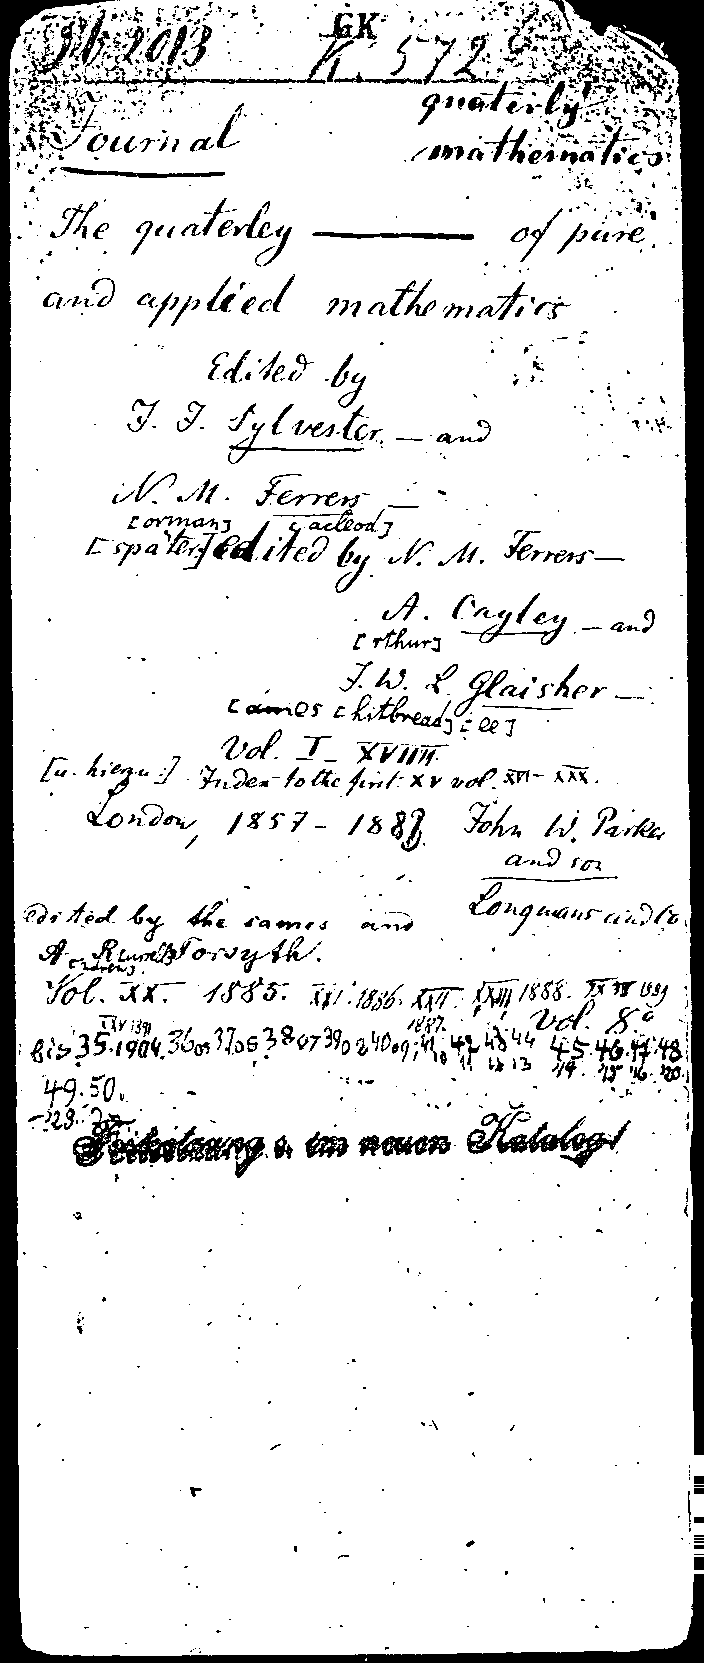 GK
2013 K. 572
quaterly
Journal
mathematics
The quaterley ——— of pure
and applied mathematics
Edited by
J. J. Sylvester — and
N. M. Ferrers —
[orman] [acleod]
[später:] edited by N. M. Ferrers —
A. Cayley — and
[rthur]
J. W. L. Glaisher —
[ames [hitbread] [ee]
Vol. I — XVIIII.
[u. hierzu:] Index to the first XV vol. XVI - XXX.
London, 1857 - 188 John W. Parker
and son
Longmans and Co
edited by the sames and
A. R. Forsyth.
[ndrew]
Vol. XX. 1885. XXI. 1886. XXII. XXIII 1888.
1887. Vol. 8°
bis 35. 1904. 36 37 38 07 39 40 09 42 43 44 45 46 47 48
49. 50.
Fortsetzung s. im neuen Katalog!